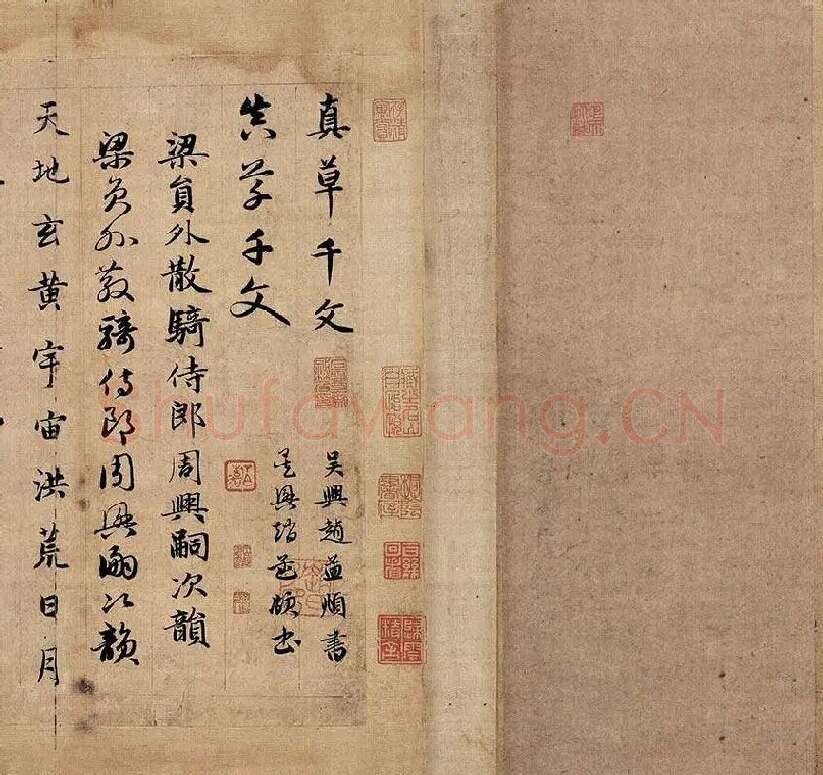 真草千文
吳興趙孟頫書
真草千文
吳興趙孟頫書
梁員外散騎侍郎周興嗣次韻
梁員外散騎侍郎周興嗣次韻
天地玄黃宇宙洪荒日月
shufawang.CN